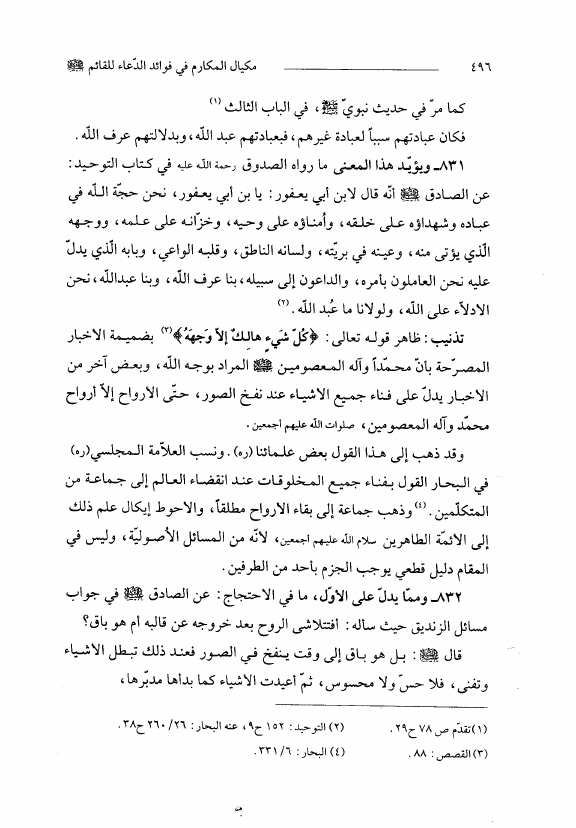 ٤٩٦ مكيال المكارم في فوائد الدّعاء للقائم ﷺ
كما مرّ في حديث نبويّ ﷺ، في الباب الثالث (١)
فكان عبادتهم سبباً لعبادة غيرهم، فبعبادتهم عبد الله، وبدلالتهم عرف الله.
٨٣١ـ ويؤيّـد هذا المعنى ما رواه الصدوق رحمة الله عليه في كتاب التوحيد:
عن الصادق ﷺ أنّه قال لابن أبي يعفور: يا بن أبي يعفور، نحن حجّة الله في
عباده وشهداؤه على خلقه، وأمناؤه على وحيه، وخزّانه على علمه، ووجهه
الّذي يؤتى منه، وعينه في بريّته، ولسانه الناطق، وقلبه الواعي، وبابه الّذي يدلّ
عليه نحن العاملون بأمره، والداعون إلى سبيله، بنا عرف الله، وبنا عبدالله، نحن
الادلاّء على الله، ولولانا ما عُبد الله. (٢)
تذنيب: ظاهر قوله تعالى: ﴿كُلّ شَيءٍ هالِكٌ إلاّ وَجهَهُ﴾(٣) بضميمة الاخبار
المصرّحة بانّ محمّداً وآله المعصومين ﷺ المراد بوجه الله، وبعض آخر من
الاخبار يدلّ على فناء جميع الاشياء عند نفخ الصور، حتّى الارواح إلاّ أرواح
محمّد وآله المعصومين، صلوات الله عليهم أجمعين.
وقد ذهب إلى هذا القول بعض علمائنا (ره). ونسب العلاّمة المجلسي(ره)
في البحار القول بفناء جميع المخلوقات عند انقضاء العالم إلى جماعة من
المتكلّمين. (٤) وذهب جماعة إلى بقاء الارواح مطلقاً، والاحوط إيكال علم ذلك
إلى الائمّة الطاهرين سلام الله عليهم اجمعين، لانّه من المسائل الأصوليّة، وليس في
المقام دليل قطعي يوجب الجزم بأحد من الطرفين.
٨٣٢ـ وممّا يدلّ على الاوّل، ما في الاحتجاج: عن الصادق ﷺ في جواب
مسائل الزنديق حيث ساله: أفتتلاشى الروح بعد خروجه عن قالبه أم هو باق؟
قال ﷺ: بـل هو باق إلى وقت ينفخ في الصور فعند ذلك تبطل الاشياء
وتفنى، فلا حسّ ولا محسوس، ثمّ أعيدت الاشياء كما بدأها مدبّرها،
(١) تقدّم ص ٧٨ ح٢٩. (٢) التوحيد: ١٥٢ ح٩، عنه البحار: ٢٦/ ٢٦٠ ح٣٨.
(٣) القصص: ٨٨. (٤) البحار: ٦/ ٣٣١.